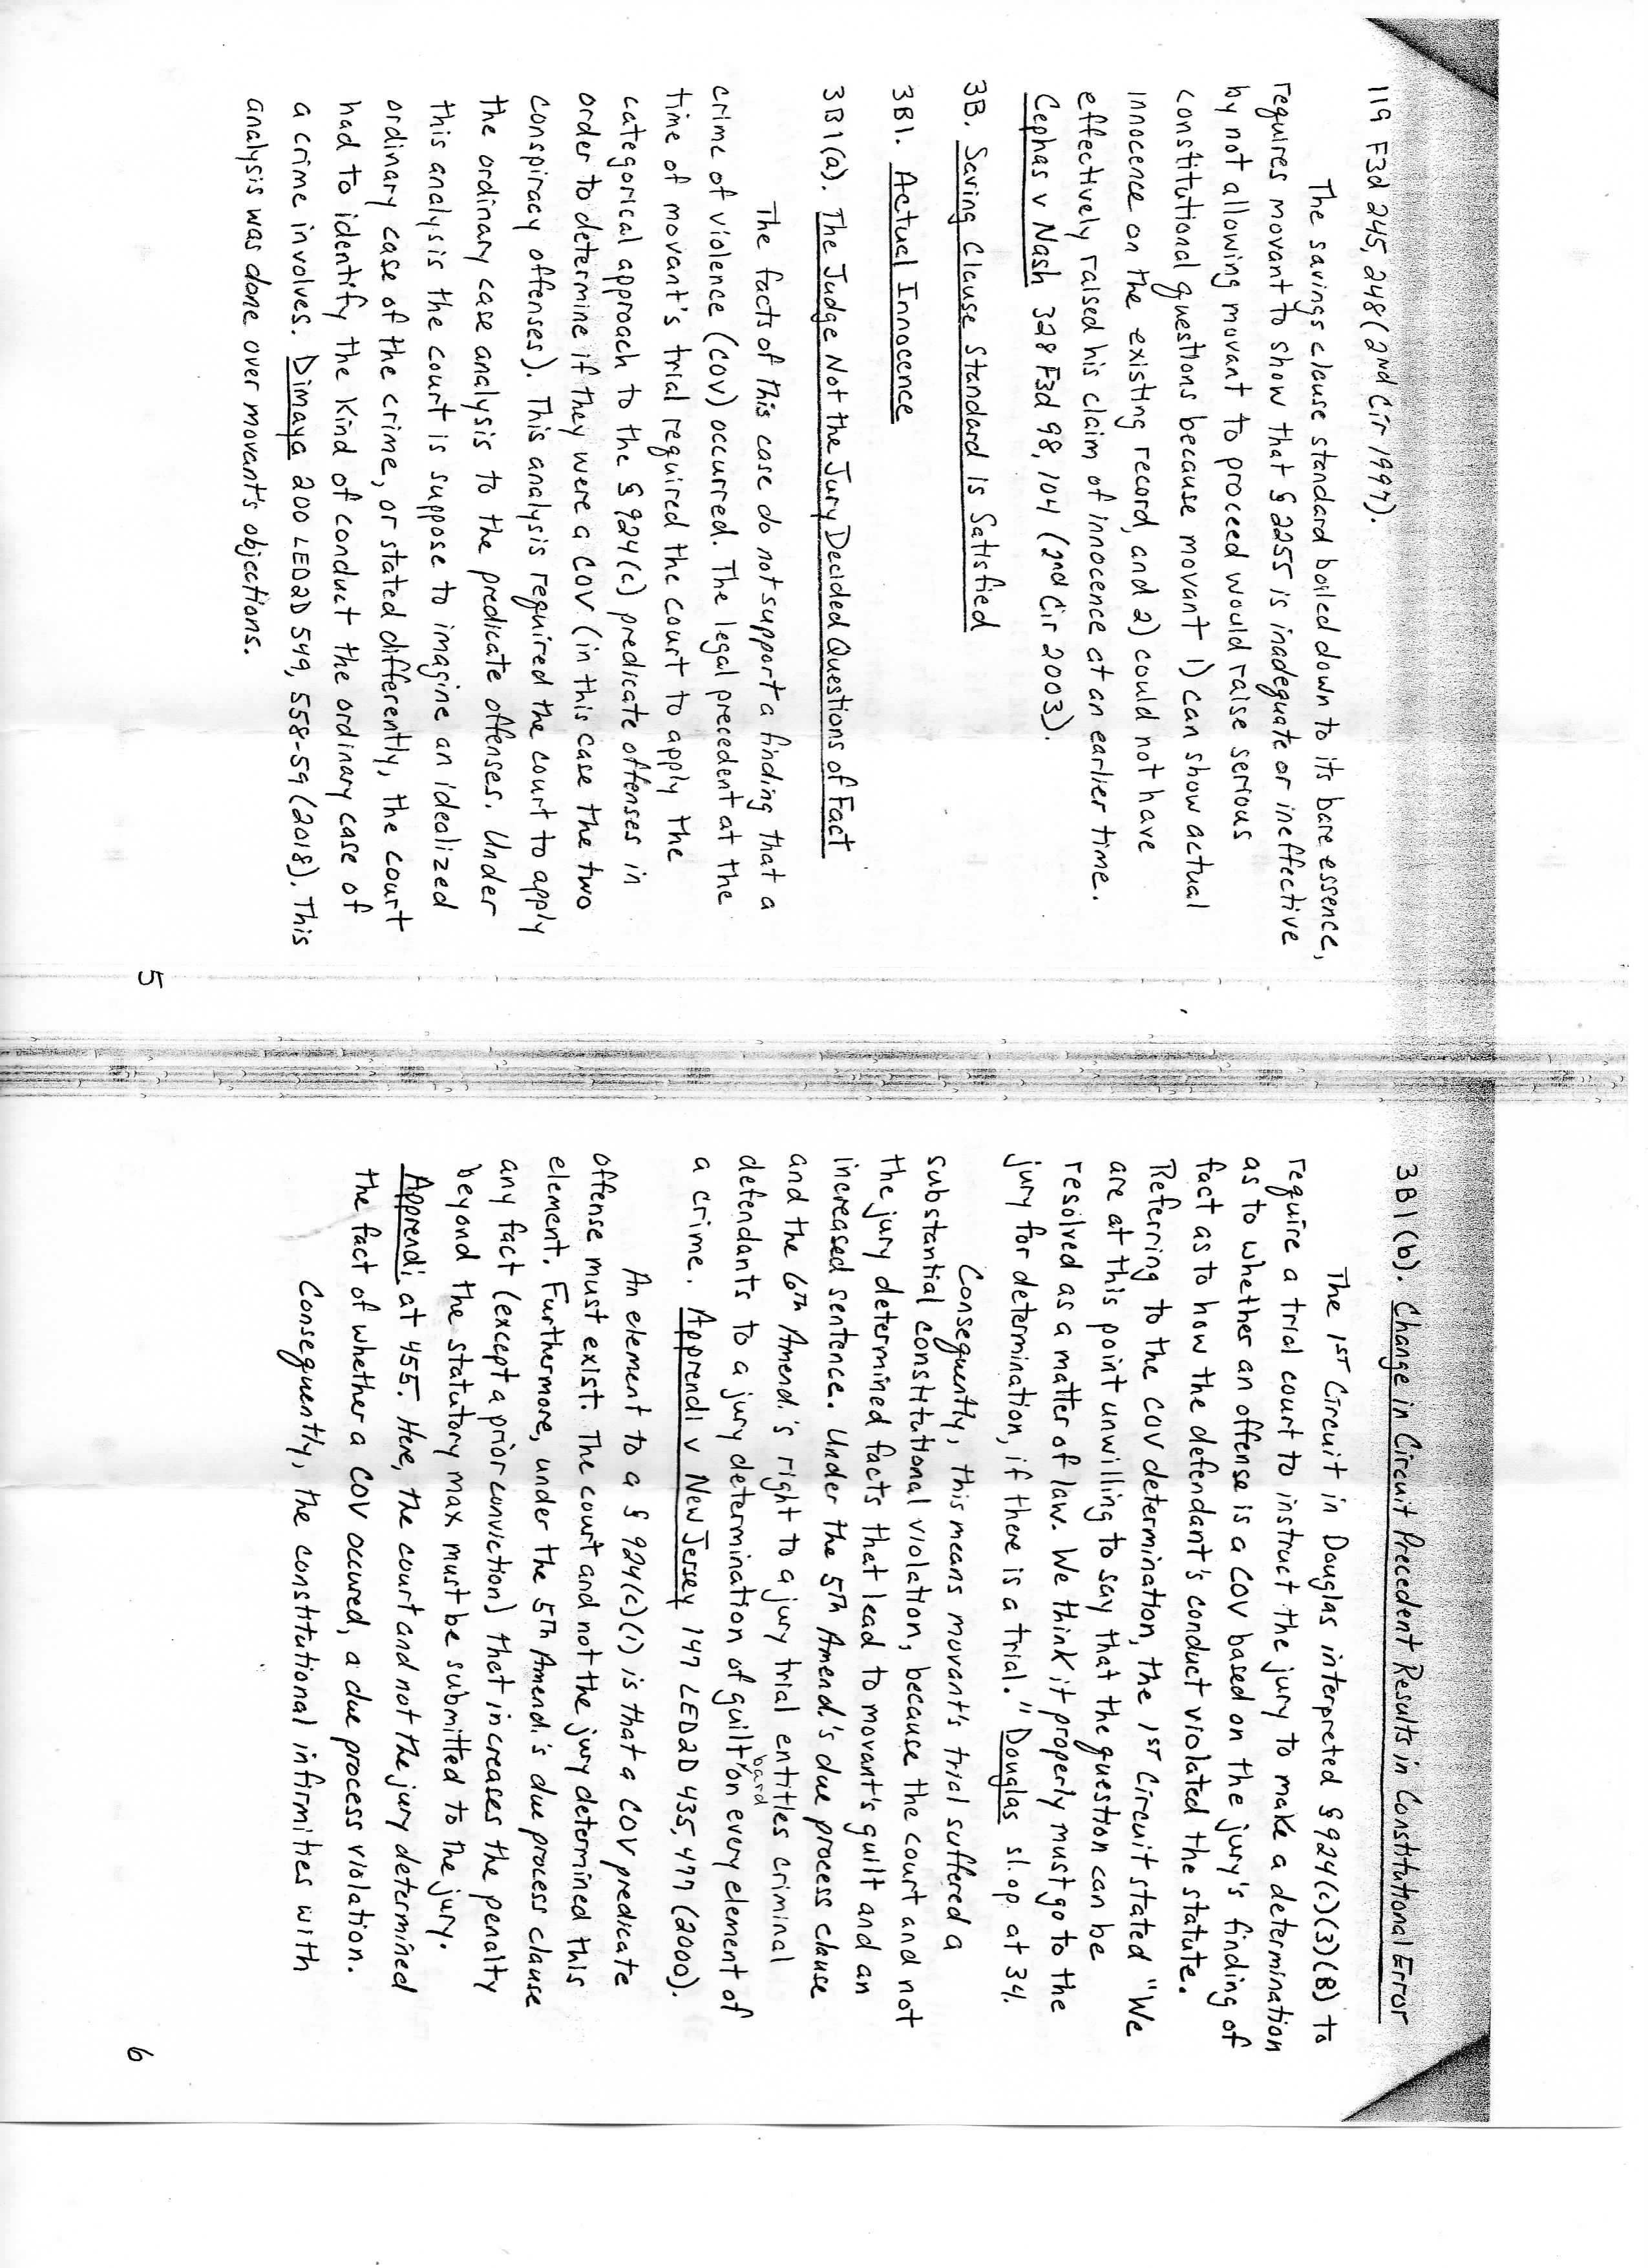 119 F3d 245, 248 (2nd Cir 1997).
The savings clause standard boiled down to its bare essence,
requires movant to show that § 2255 is inadequate or ineffective
by not allowing movant to proceed would raise serious
constitutional questions because movant 1) can show actual
innocence on the existing record, and 2) could not have
effectively raised his claim of innocence at an earlier time.
Cephas v Nash 328 F3d 98, 104 (2nd Cir 2003).
3B. Saving Clause Standard Is Satisfied
3B1. Actual Innocence
3B1(a). The Judge Not the Jury Decided Questions of Fact
The facts of this case do not support a finding that a
crime of violence (COV) occurred. The legal precedent at the
time of movant's trial required the court to apply the
categorical approach to the § 924(c) predicate offenses in
order to determine if they were a COV (in this case the two
conspiracy offenses). This analysis required the court to apply
the ordinary case analysis to the predicate offenses. Under
this analysis the court is suppose to imagine an idealized
ordinary case of the crime, or stated differently, the court
had to identify the kind of conduct the ordinary case of
a crime involves. Dimaya 200 LED2D 549, 558-59 (2018). This
analysis was done over movant's objections.
5
3B1(b). Change in Circuit Precedent Results in Constitutional Error
The 1ST Circuit in Douglas interpreted § 924(c)(3)(B) to
require a trial court to instruct the jury to make a determination
as to whether an offense is a COV based on the jury's finding of
fact as to how the defendant's conduct violated the statute.
Referring to the COV determination, the 1ST Circuit stated "We
are at this point unwilling to say that the question can be
resolved as a matter of law. We think it properly must go to the
jury for determination, if there is a trial." Douglas sl. op. at 34.
Consequently, this means movant's trial suffered a
substantial constitutional violation, because the court and not
the jury determined facts that lead to movant's guilt and an
increased sentence. Under the 5th Amend.'s due process clause
and the 6th Amend.'s right to a jury trial entitles criminal
defendants to a jury determination of guilt bard on every element of
a crime. Apprendi v New Jersey 147 LED2D 435, 477 (2000).
An element to a § 924(c)(1) is that a COV predicate
offense must exist. The court and not the jury determined this
element. Furthermore, under the 5th Amend.'s due process clause
any fact (except a prior conviction) that increases the penalty
beyond the statutory max must be submitted to the jury.
Apprendi at 455. Here, the court and not the jury determined
the fact of whether a COV occured, a due process violation.
Consequently, the constitutional infirmities with
6